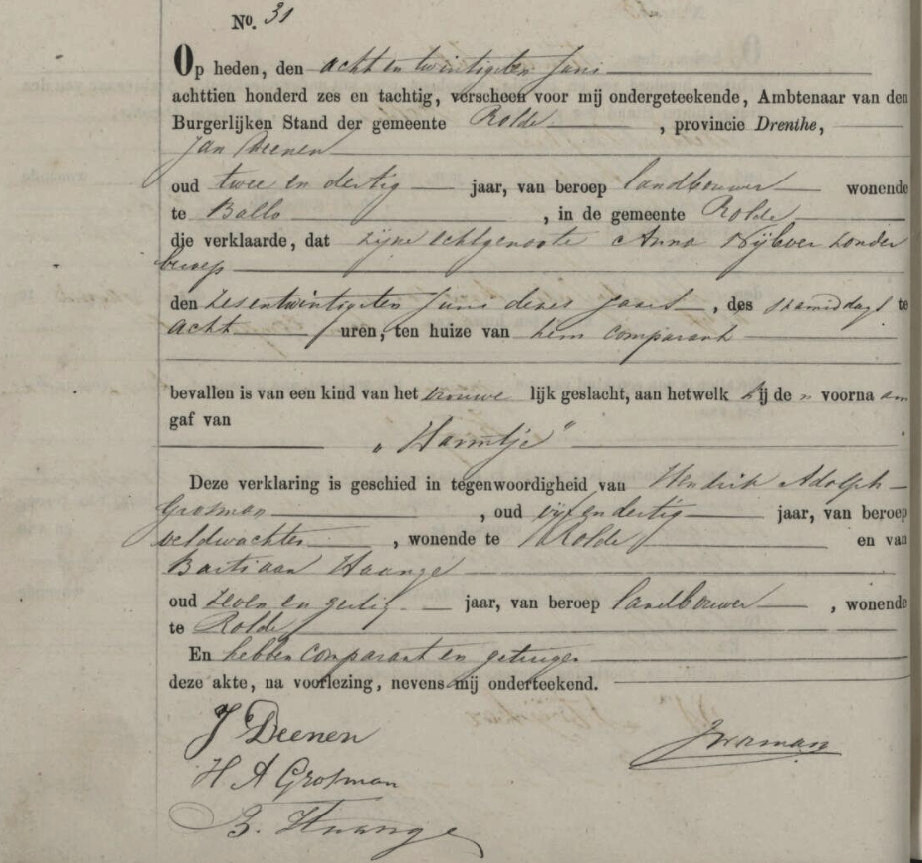 No. 31
Op heden, den acht en twintigsten Juni
achttien honderd zes en tachtig, verscheen voor mij ondergeteekende, Ambtenaar van den
Burgerlijken Stand der gemeente Rolde, provincie Drenthe,
Jan Deenen
oud twee en dertig jaar, van beroep landbouwer wonende
te Ballo, in de gemeente Rolde
die verklaarde, dat zijne echtgenoote Anna Nijboer zonder
beroep
den zesentwintigsten Juni dezes jaars, des namiddags te
acht uren, ten huize van hem comparant
bevallen is van een kind van het vrouwelijk geslacht, aan hetwelk hij de n voornaam
gaf van
„Harmtje”
Deze verklaring is geschied in tegenwoordigheid van Hendrik Adolph
Grosman, oud vijf en dertig jaar, van beroep
veldwachter, wonende te Rolde en van
Bastiaan Haange
oud zeven en jaar, van beroep landbouwer, wonende
te Rolde
En hebben comparant en getuigen
deze akte, na voorlezing, nevens mij onderteekend.
J Deenen
H A Grosman
B. Haange